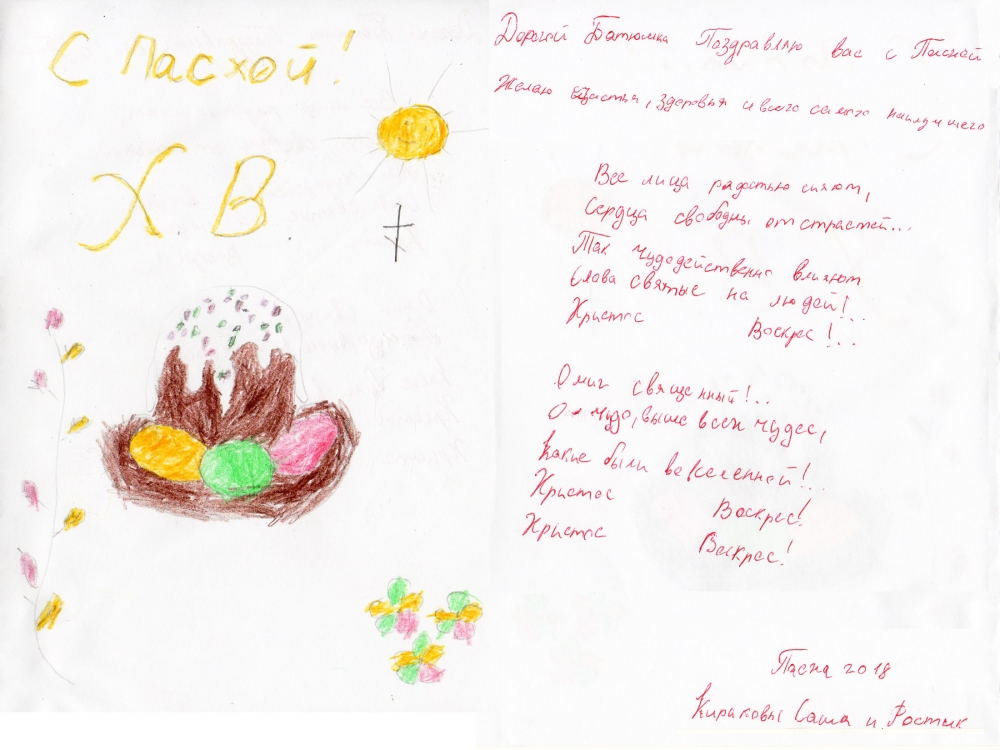 С Пасхой!
Х.В.
Дорогой Батюшка Поздравляю вас с Пасхой
Желаю Щастья, здоровья и всего самого наилудшего
Все лица радостью сияют,
Сердца свободны от страстей...
Так чудодейственно влияют
Слова святые на людей!..
Христос Воскрес!..
О миг священный!..
О чудо, выше всех чудес,
Какие были во вселенной!..
Христос Воскрес!
Христос Воскрес!
Пасха 2018
Саша и Ростик